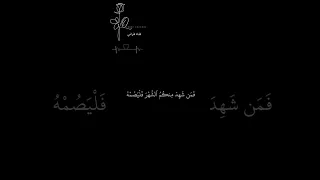 فَمَن شَهِدَ مِنكُمُ ٱلشَّهْرَ فَلْيَصُمْهُ
فَمَن شَهِدَ
فَلْيَصُمْهُ